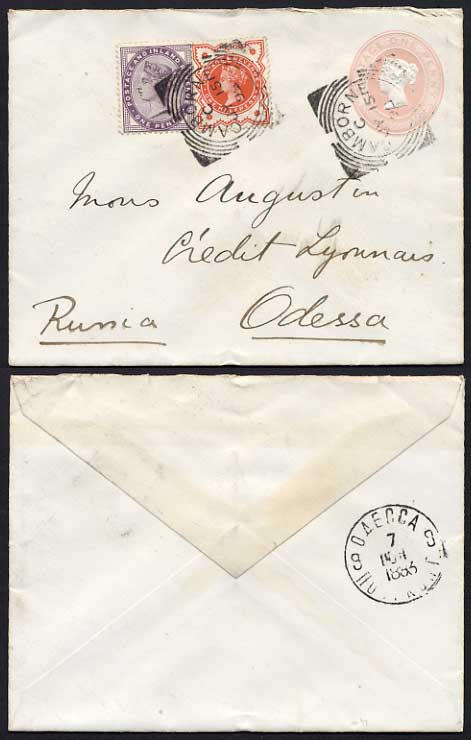 POSTAGE AND INLAND
ONE PENNY
CAMBORNE
CAMBORNE
Mons Augustin
Crédit Lyonnais.
Russia Odessa
ОДЕССА
7
1893